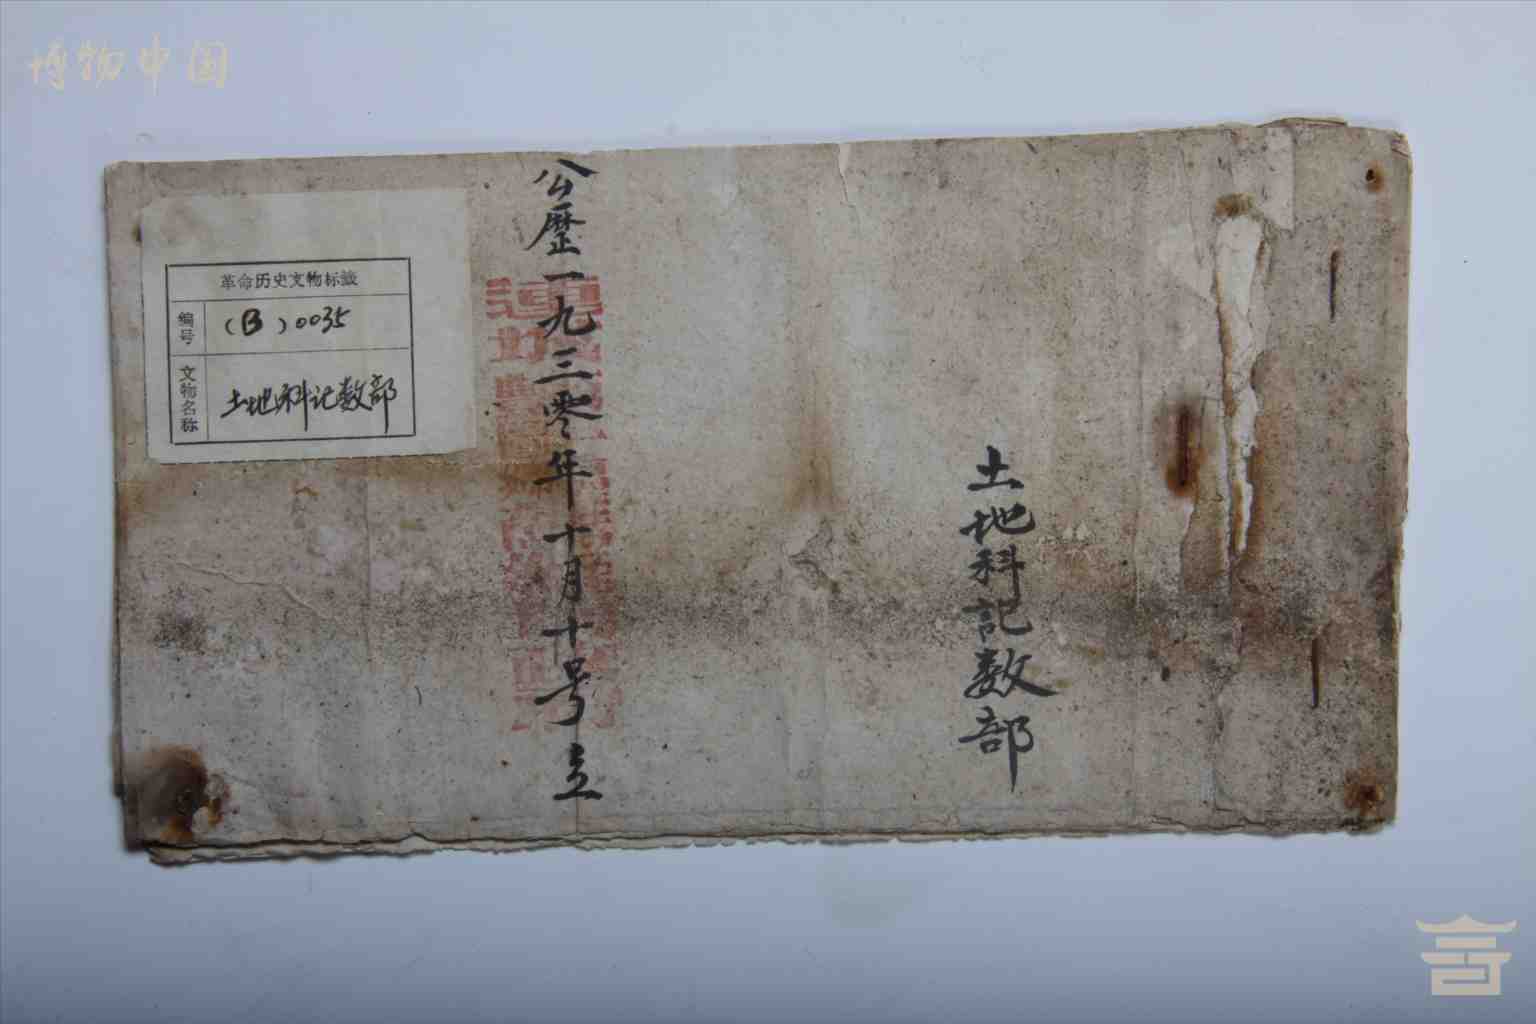 博物中国
革命历史文物标签
编号
(B)0035
文物名称
土地科记数部
土地科记数部
公歷一九三零年十月十号立